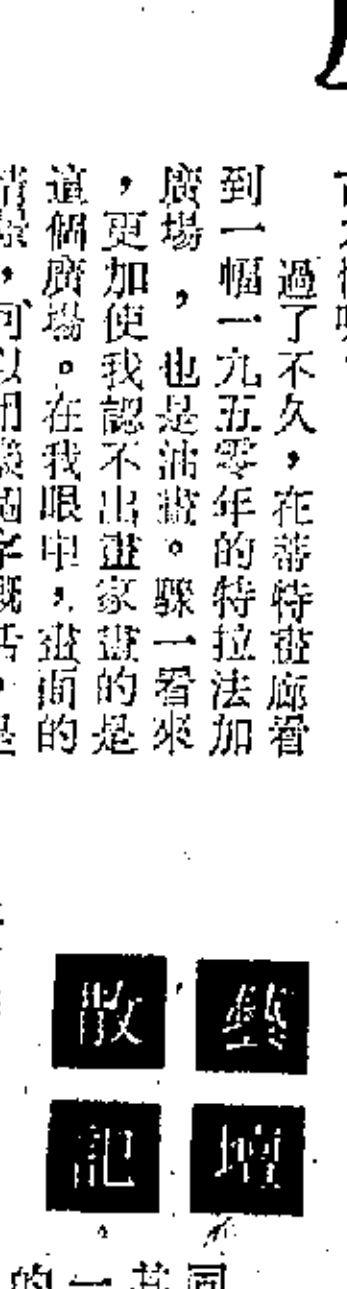 過了不久，在蒂特畫廊看
到一幅一九五零年的特拉法加
廣場，也是油畫。驟一看來
，更加使我認不出畫家畫的是
這個廣場。在我眼中，畫面的
藝壇
散記